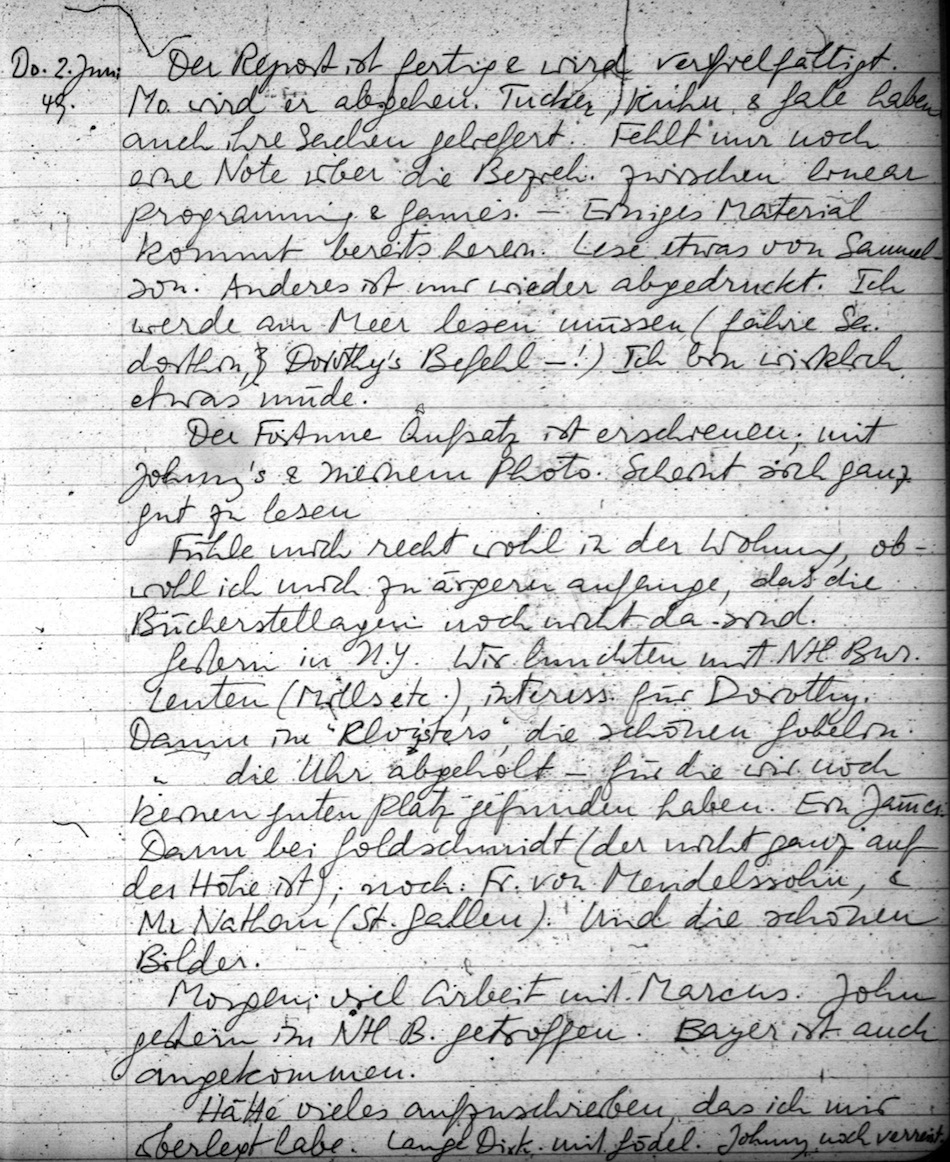 Do. 2. Juni Der Report ist fertig & wird vervielfältigt.
49. Mo. wird er abgehen. Tucker, Kuhn & Gale haben
auch ihre Sachen geliefert. Fehlt nur noch
eine Note über die Bezieh. zwischen linear
programming & games. — Einiges Material
kommt bereits herein. Lese etwas von Samuel-
son. Anderes ist nur wieder abgedruckt. Ich
werde am Meer lesen müssen (fahre Sa.
dorthin, Dorothy's Befehl —!) Ich bin wirklich
etwas müde.
Der Fortune Aufsatz ist erschienen, mit
Johnny's & meinem Photo. Scheint sich ganz
gut zu lesen
Fühle mich recht wohl in der Wohnung, ob-
wohl ich mich zu ärgern anfange, das die
Bücherstellagen noch nicht da sind.
Gestern in N.Y. Wir lunchten mit NH Bur.
Leuten (Mills etc.), interess. für Dorothy.
Dann im "Kloysters", die schönen Gobelin.
" die Uhr abgeholt — für die wir noch
keinen guten Platz gefunden haben. Ein Jammer.
Dann bei Goldschmidt (der nicht ganz auf
der Höhe ist); noch: Fr. von Mendelssohn, &
Mr Nathan (St. Gallen). Und die schönen
Bilder.
Morgen viel Arbeit mit Marcus. John
gestern im NH B. getroffen. Bayer ist auch
angekommen.
Hätte vieles aufzuschreiben, das ich mir
überlegt habe. Lange Disk. mit Gödel. Johnny noch verreist